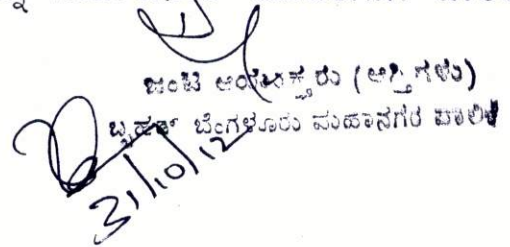 ಜಂಟಿ ಆಯುಕ್ತರು (ಆಸ್ತಿಗಳು)
ಬೃಹತ್ ಬೆಂಗಳೂರು ಮಹಾನಗರ ಪಾಲಿಕೆ
31/10/12